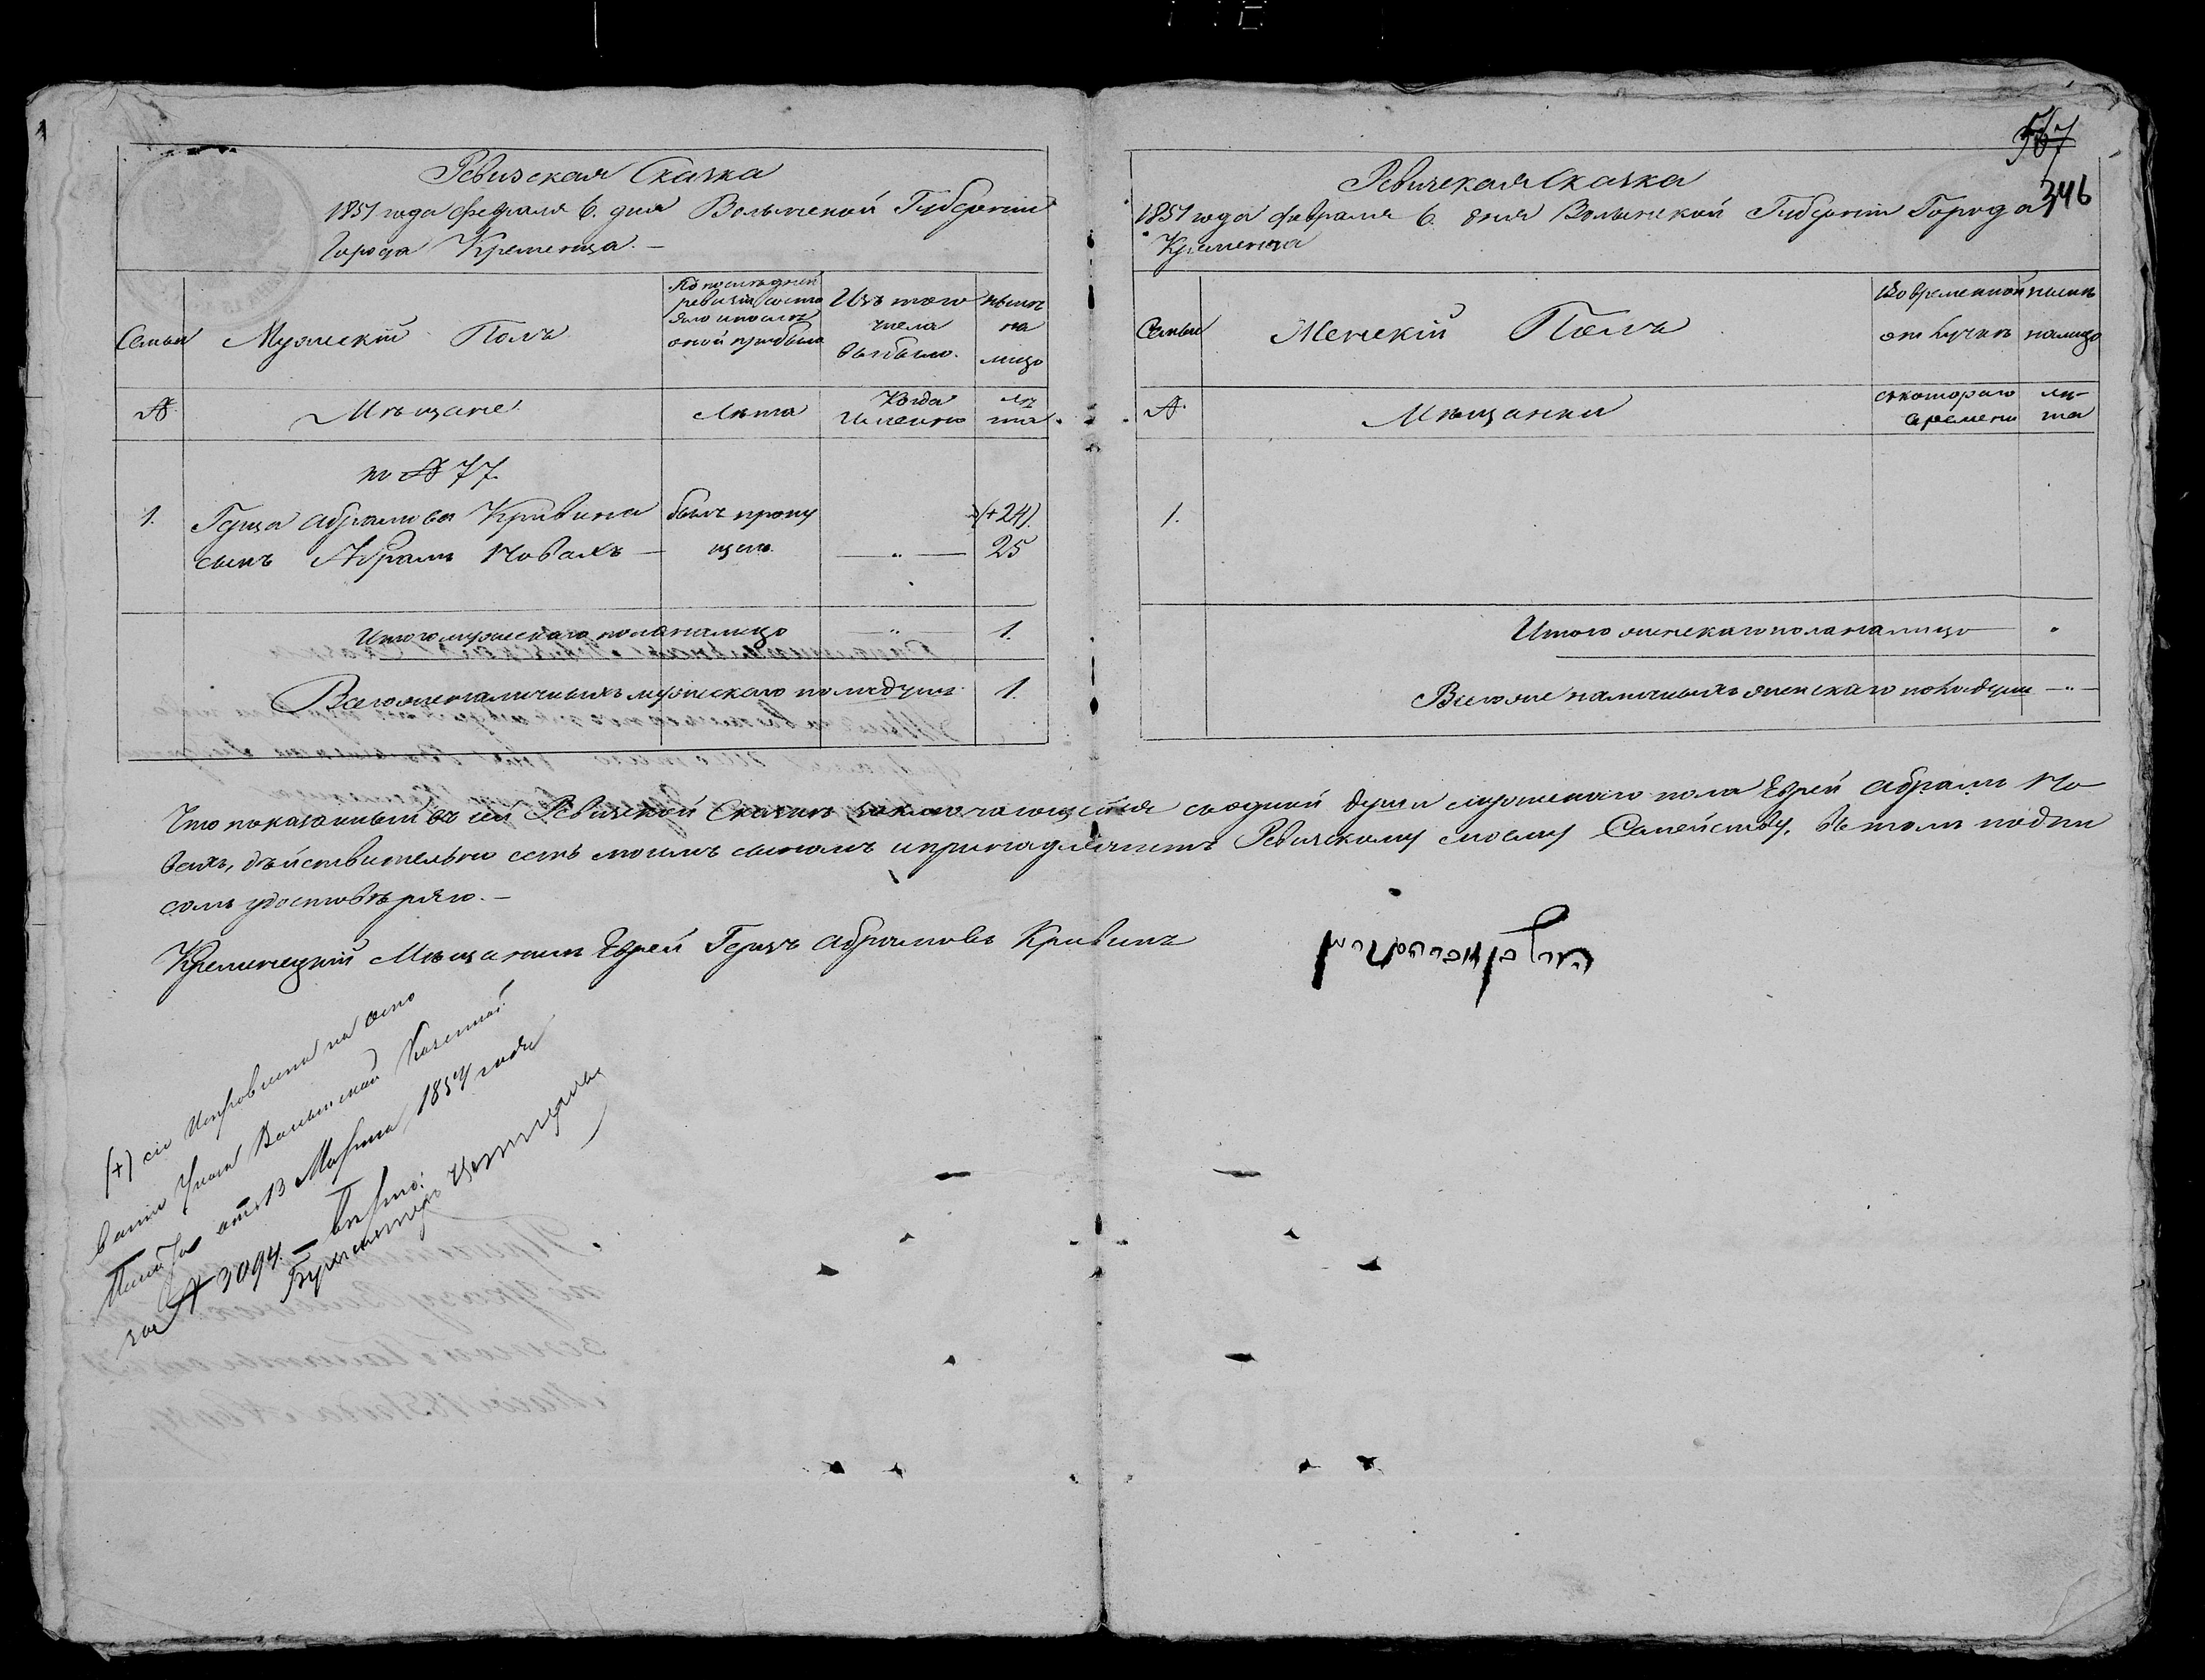 567
346
Ревизская Сказка
1851 года февраля 6. дня Волынской Губернии
Города Кременца. –
Семьи
Мужескій Полъ
По последней
ревизіи состо
яло и после
оной прибыло
Изъ того
числа
выбыло.
ныне
на
лицо
№
Мѣщане
Лѣта
Когда
именно
лѣ
та
по № 77.
1.
Герша Абрамова Кривина
былъ пропу
(+24)
сынъ Абрамъ Новахъ –
щенъ.
— " —
25
Итого мужескаго пола на лицо
— " —
1.
Всего же наличныхъ мужескаго пола душъ
1.
Ревизская Сказка
1851 года февраля 6. дня Волынской Губерніи Города
Кременца
Семьи
Женскій Полъ
Во временной
отлучке
ныне
налицо
№
Мѣщанки
съ котораго
времени
лѣ-
та
1.
Итого женскаго пола на лицо
Всего же наличныхъ женскаго пола душъ — " —
Что показанный въ сей Ревизской Сказкѣ, заключающейся съ одной души мужескаго пола Еврей Абрамъ Но
вахъ, дѣйствительно есть моимъ сыномъ и принадлежитъ Ревизскому моему Семейству, въ томъ подпи
сомъ удостовѣряю. –
Кременецкій Мѣщанинъ Еврей Герцъ Абрамовъ Кривинъ
(+) сіе исправлено на осно
ваніи Указа Волынской Казенной
Палаты отъ 13 Марта 1854 года
за № 3094. – Верно: